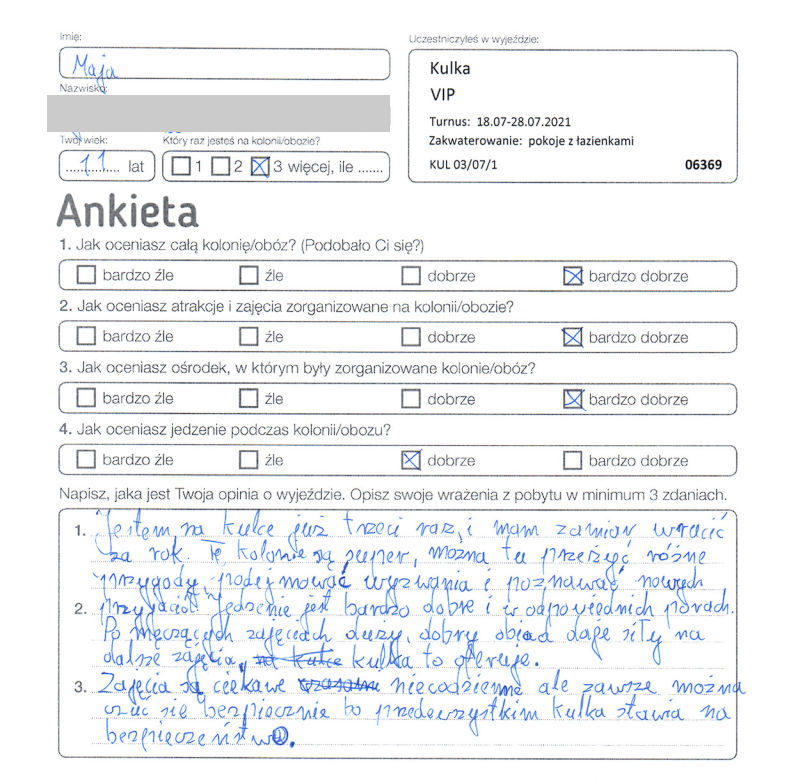 Imię:
Maja
Nazwisko:
Twój wiek:
11 lat
Który raz jesteś na kolonii/obozie?
1 2 3 więcej, ile .......
Uczestniczyłeś w wyjeździe:
Kulka
VIP
Turnus: 18.07-28.07.2021
Zakwaterowanie: pokoje z łazienkami
KUL 03/07/1 06369
Ankieta
1. Jak oceniasz całą kolonię/obóz? (Podobało Ci się?)
bardzo źle źle dobrze bardzo dobrze
2. Jak oceniasz atrakcje i zajęcia zorganizowane na kolonii/obozie?
bardzo źle źle dobrze bardzo dobrze
3. Jak oceniasz ośrodek, w którym były zorganizowane kolonie/obóz?
bardzo źle źle dobrze bardzo dobrze
4. Jak oceniasz jedzenie podczas kolonii/obozu?
bardzo źle źle dobrze bardzo dobrze
Napisz, jaka jest Twoja opinia o wyjeździe. Opisz swoje wrażenia z pobytu w minimum 3 zdaniach.
1. Jestem na kulce już trzeci raz, i mam zamiar wrócić
za rok. Te kolonie są super, można tu przeżyć różne
przygody, podejmować wyzwania i poznawać nowych
2. przyjaciół. Jedzenie jest bardzo dobre i w odpowiednich porach.
Po męczących zajęciach duży, dobry obiad daje siły na
dalsze zajęcia, kulka to oferuje.
3. Zajęcia są ciekawe niecodzienne ale zawsze można
czuć się bezpiecznie bo przedewszystkim kulka stawia na
bezpieczeństwo.